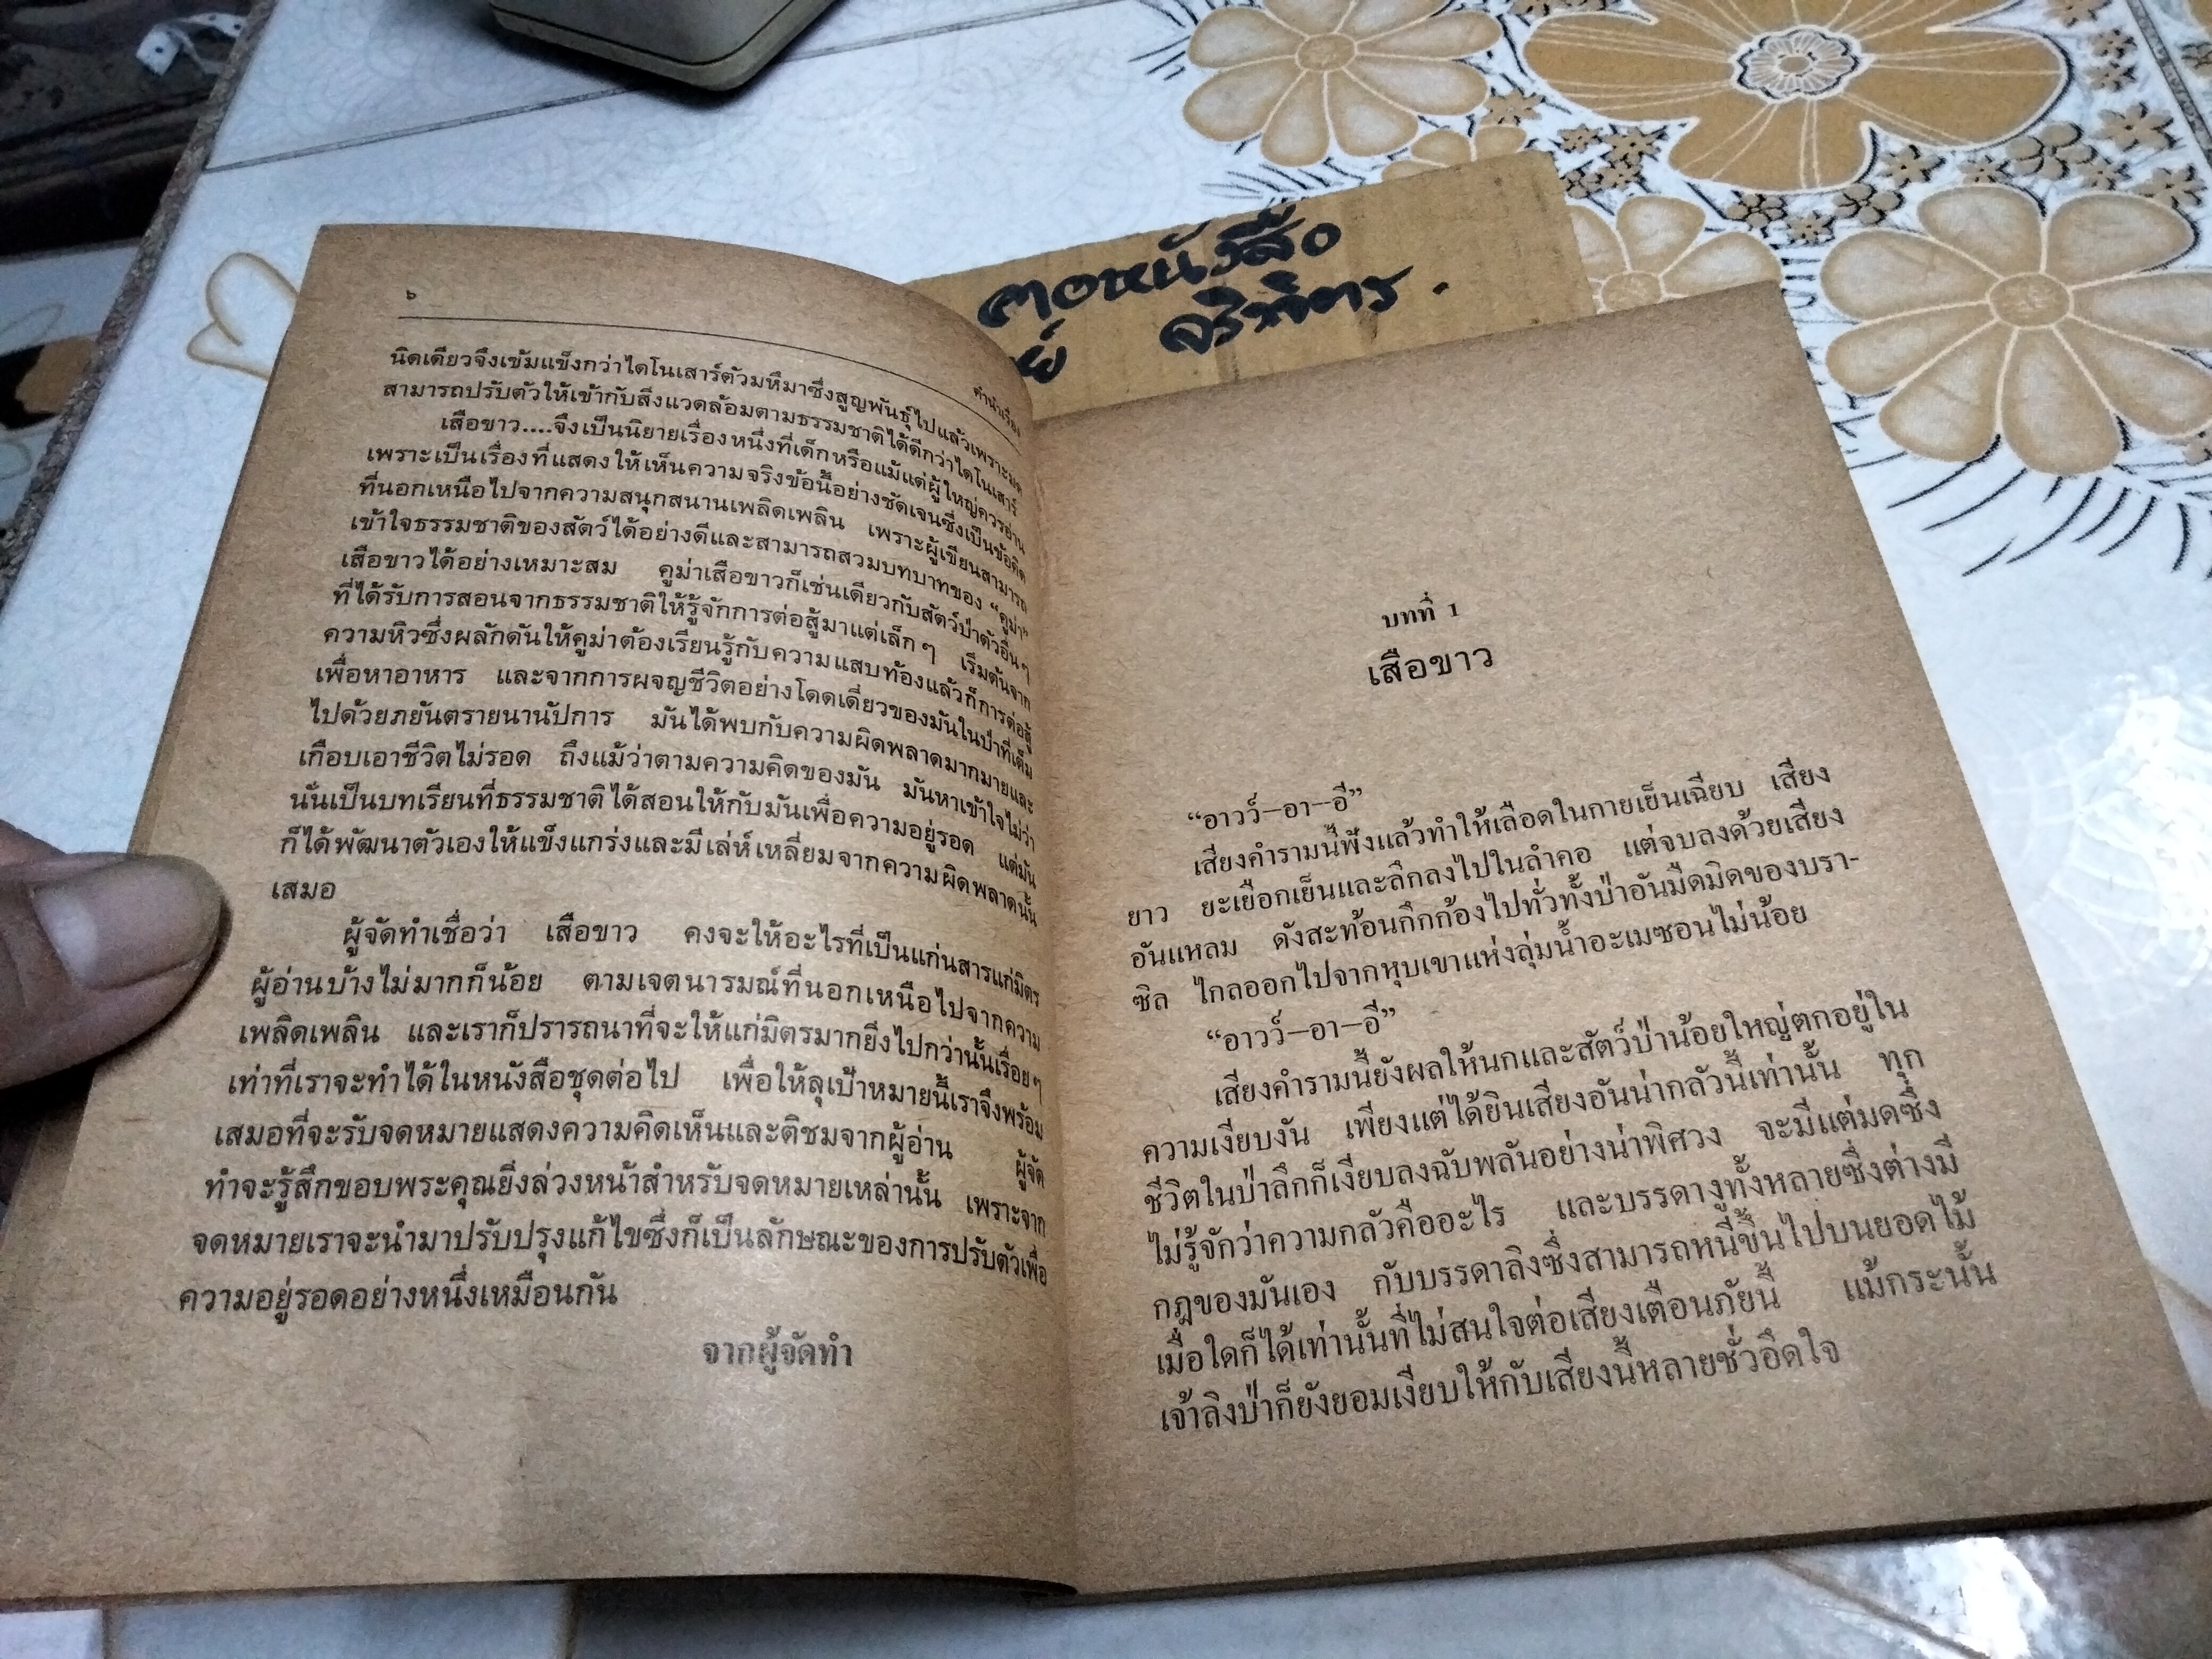 คอหนังสือ
ย์ จริพิตร.
๖
คำนำเรื่อง
นิดเดียวจึงเข้มแข็งกว่าไดโนเสาร์ตัวมหึมาซึ่งสูญพันธุ์ไปแล้วเพราะมด
สามารถปรับตัวให้เข้ากับสิ่งแวดล้อมตามธรรมชาติได้ดีกว่าไดโนเสาร์
เสือขาว....จึงเป็นนิยายเรื่องหนึ่งที่เด็กหรือแม้แต่ผู้ใหญ่ควรอ่าน
เพราะเป็นเรื่องที่แสดงให้เห็นความจริงข้อนี้อย่างชัดเจนซึ่งเป็นข้อคิด
ที่นอกเหนือไปจากความสนุกสนานเพลิดเพลิน เพราะผู้เขียนสามารถ
เข้าใจธรรมชาติของสัตว์ได้อย่างดีและสามารถสวมบทบาทของ “คูม่า”
เสือขาวได้อย่างเหมาะสม คูม่าเสือขาวก็เช่นเดียวกับสัตว์ป่าตัวอื่นๆ
ที่ได้รับการสอนจากธรรมชาติให้รู้จักการต่อสู้มาแต่เล็กๆ เริ่มต้นจาก
ความหิวซึ่งผลักดันให้คูม่าต้องเรียนรู้กับความแสบท้องแล้วก็การต่อสู้
เพื่อหาอาหาร และจากการผจญชีวิตอย่างโดดเดี่ยวของมันในป่าที่เต็ม
ไปด้วยภยันตรายนานัปการ มันได้พบกับความผิดพลาดมากมายและ
เกือบเอาชีวิตไม่รอด ถึงแม้ว่าตามความคิดของมัน มันหาเข้าใจไม่ว่า
นั่นเป็นบทเรียนที่ธรรมชาติได้สอนให้กับมันเพื่อความอยู่รอด แต่มัน
ก็ได้พัฒนาตัวเองให้แข็งแกร่งและมีเล่ห์เหลี่ยมจากความผิดพลาดนั้น
เสมอ
ผู้จัดทำเชื่อว่า เสือขาว คงจะให้อะไรที่เป็นแก่นสารแก่มิตร
ผู้อ่านบ้างไม่มากก็น้อย ตามเจตนารมณ์ที่นอกเหนือไปจากความ
เพลิดเพลิน และเราก็ปรารถนาที่จะให้แก่มิตรมากยิ่งไปกว่านั้นเรื่อยๆ
เท่าที่เราจะทำได้ในหนังสือชุดต่อไป เพื่อให้ลุเป้าหมายนี้เราจึงพร้อม
เสมอที่จะรับจดหมายแสดงความคิดเห็นและติชมจากผู้อ่าน ผู้จัด
ทำจะรู้สึกขอบพระคุณยิ่งล่วงหน้าสำหรับจดหมายเหล่านั้น เพราะจาก
จดหมายเราจะนำมาปรับปรุงแก้ไขซึ่งก็เป็นลักษณะของการปรับตัวเพื่อ
ความอยู่รอดอย่างหนึ่งเหมือนกัน
จากผู้จัดทำ
บทที่ 1
เสือขาว
“อาวว์—อา—อี”
เสียงคำรามนี้ฟังแล้วทำให้เลือดในกายเย็นเฉียบ เสียง
ยาว ยะเยือกเย็นและลึกลงไปในลำคอ แต่จบลงด้วยเสียง
อันแหลม ดังสะท้อนกึกก้องไปทั่วทั้งป่าอันมืดมิดของบรา-
ซิล ไกลออกไปจากหุบเขาแห่งลุ่มน้ำอะเมซอนไม่น้อย
“อาวว์—อา—อี”
เสียงคำรามนี้ยังผลให้นกและสัตว์ป่าน้อยใหญ่ตกอยู่ใน
ความเงียบงัน เพียงแต่ได้ยินเสียงอันน่ากลัวนี้เท่านั้น ทุก
ชีวิตในป่าลึกก็เงียบลงฉับพลันอย่างน่าพิศวง จะมีแต่มดซึ่ง
ไม่รู้จักว่าความกลัวคืออะไร และบรรดางูทั้งหลายซึ่งต่างมี
กฎของมันเอง กับบรรดาลิงซึ่งสามารถหนีขึ้นไปบนยอดไม้
เมื่อใดก็ได้เท่านั้นที่ไม่สนใจต่อเสียงเตือนภัยนี้ แม้กระนั้น
เจ้าลิงป่าก็ยังยอมเงียบให้กับเสียงนี้หลายชั่วอึดใจ